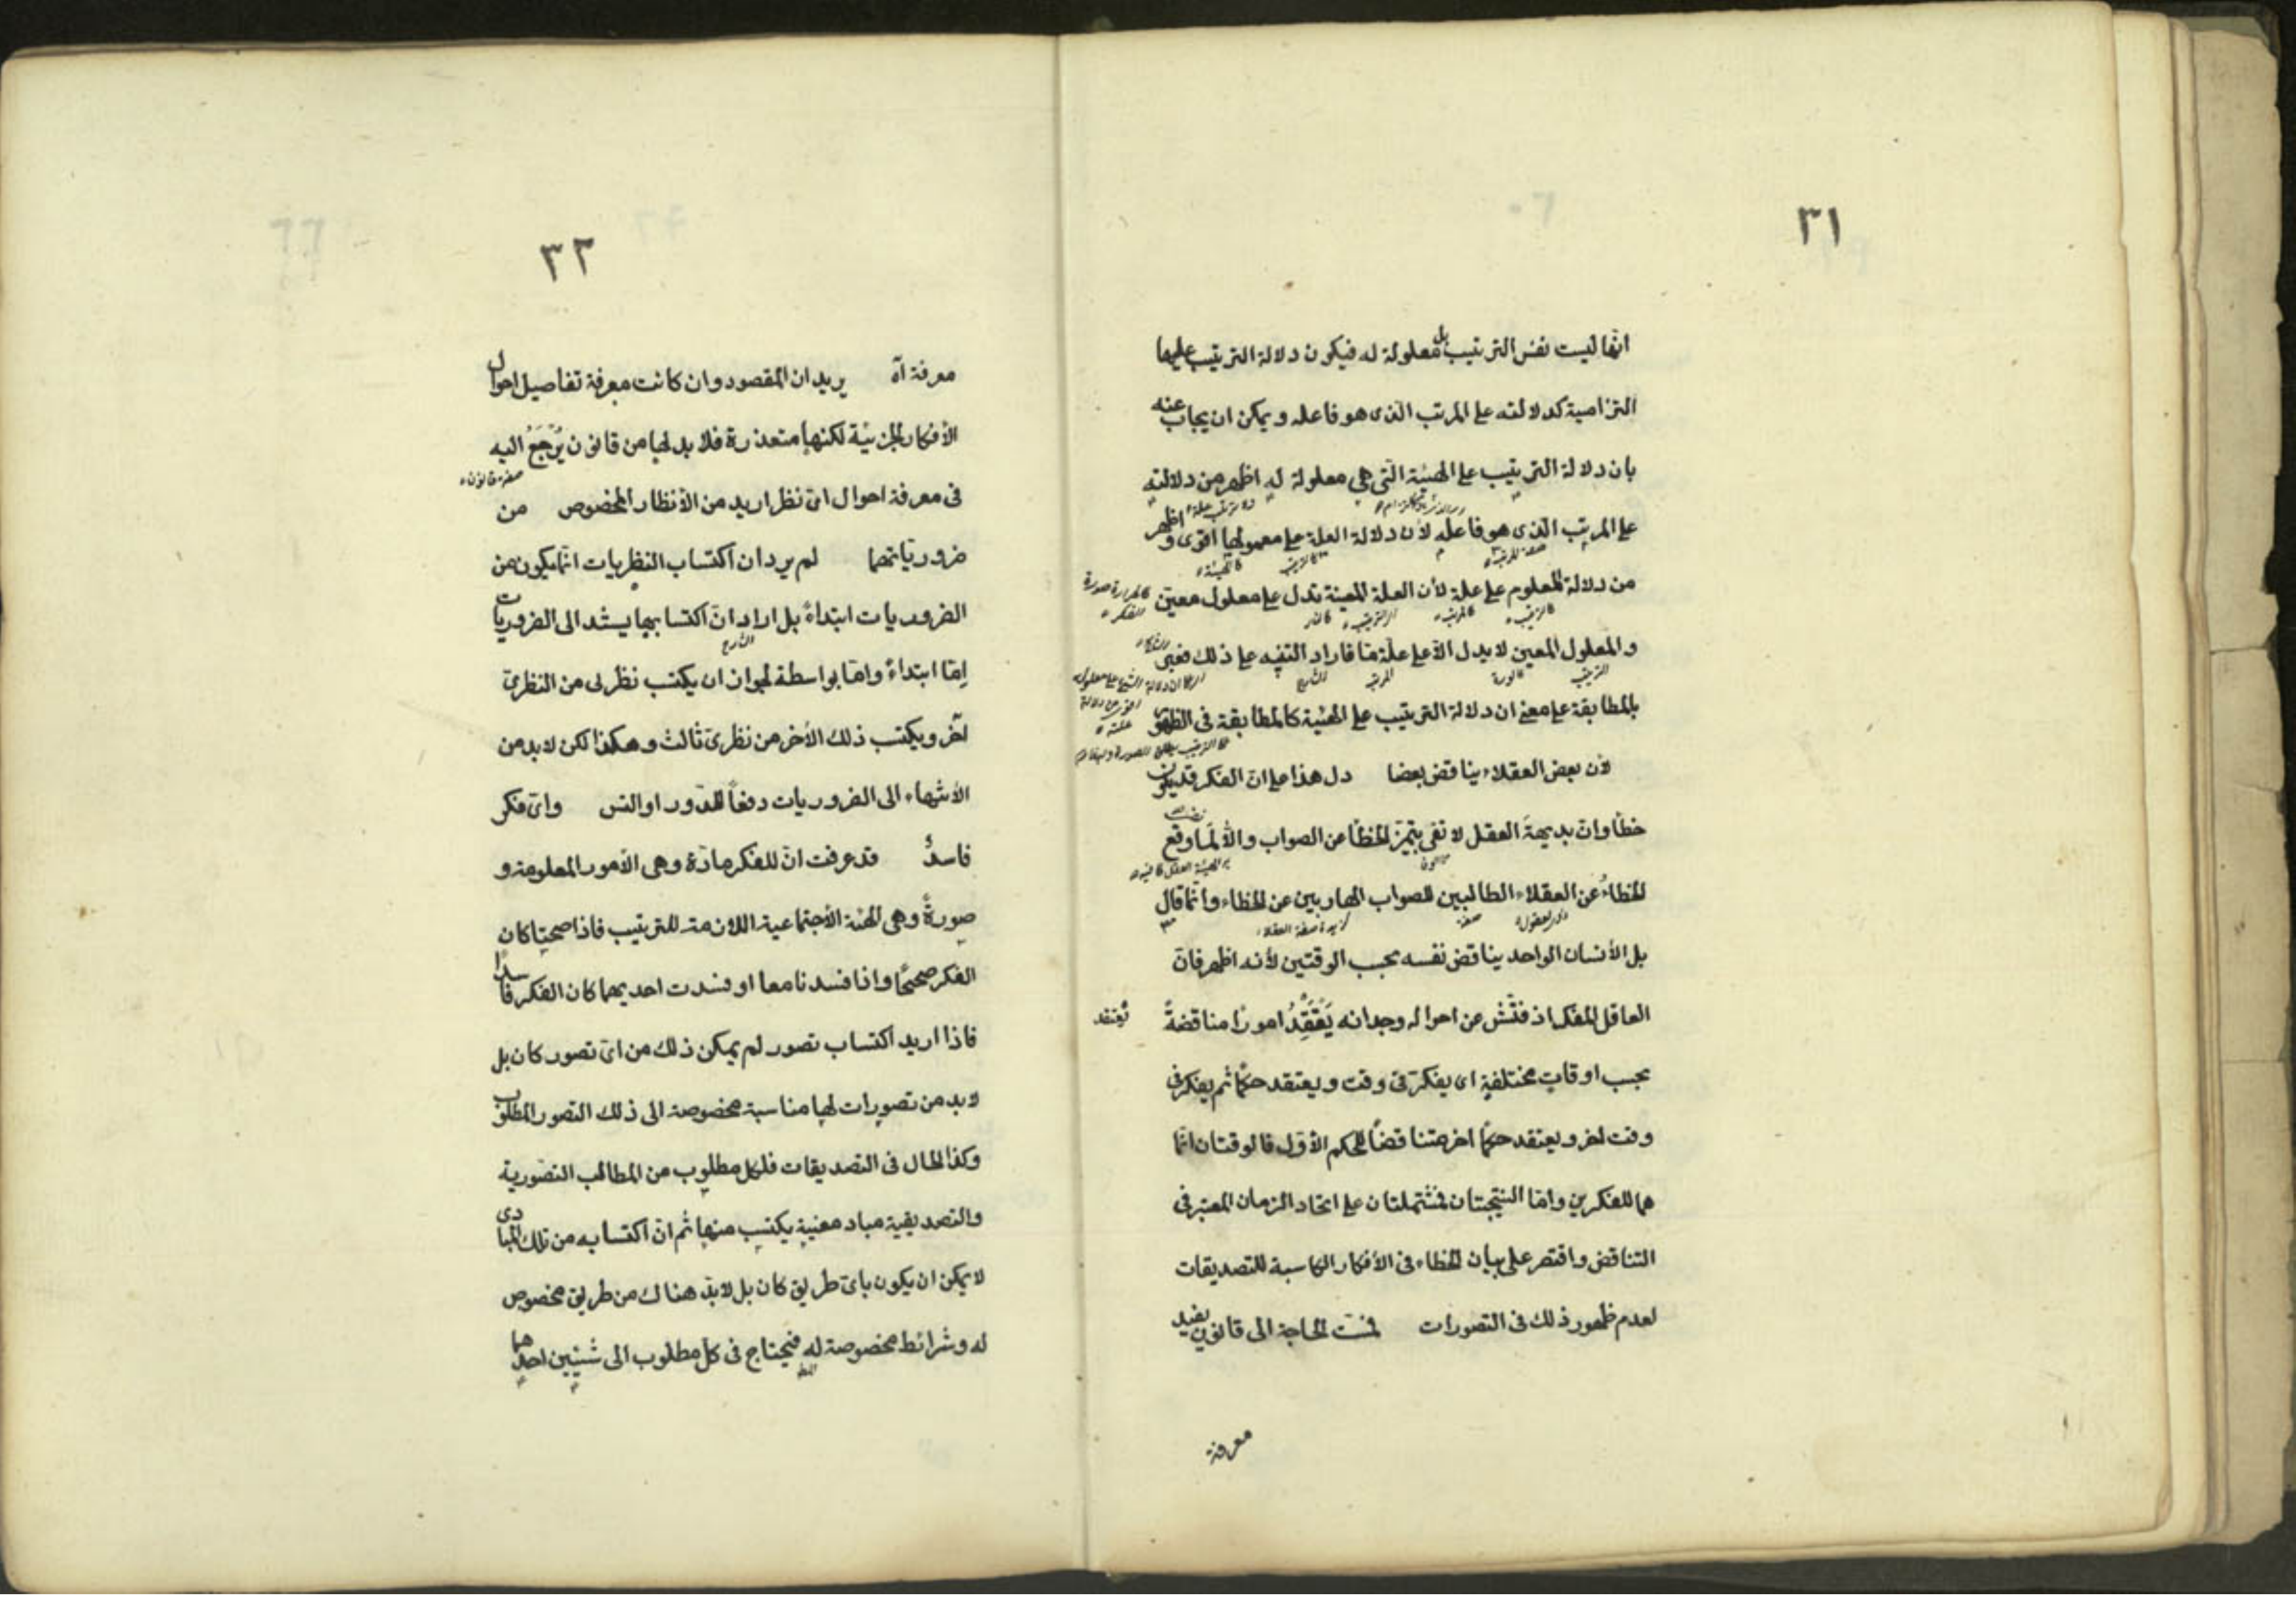 ٣١
انها ليست نفس الترتيب بل معلولة له فيكون دلالة الترتيب عليها
التزامية كدلالته على المرتب الذى هو فاعله ويمكن ان يجاب عنه
بان دلالة الترتيب على الهيئة التى هى معلولة له اظهر من دلالته
على المرتب الذى هو فاعله لأن دلالة العلة على معلولها اقوى و اظهر
من دلالة المعلوم على علة لأن العلة المعينة تدل على معلول معين
والمعلول المعين لا يدل الا على علة ما فاراد التنبيه على ذلك فعبر
بالمطابقة على معنى ان دلالة الترتيب على الهيئة كالمطابقة فى الظهور
لأن بعض العقلاء يناقض بعضا دل هذا على ان الفكر قد يكون
خطأ وان بديهة العقل لا تفى بتميز الخطأ عن الصواب والا لما وقع
الخطاء عن العقلاء الطالبين للصواب الهاربين عن الخطاء وانما قال
بل الأنسان الواحد يناقض نفسه بحسب الوقتين لأنه اظهر فان
العاقل المفكر اذ فتّش عن احواله وجدانه يَعْتَقِدُ امورًا مناقضةً
تعتقد
بحسب اوقات مختلفةٍ اى يفكر فى وقت ويعتقد حكمًا ثم يفكر فى
وقت اخر ويعتقد حكمًا اخر متناقضًا للحكم الأوّل فالوقتان انّما
هما للفكرين وامّا النتيجتان فمشتملتان على اتحاد الزمان المعتبر فى
التناقض واقتصر على بيان الخطاء فى الأفكار الكاسبة للتصديقات
لعدم ظهور ذلك فى التصورات فمست الحاجة الى قانون يفيد
معرفة
٣٢
معرفة آه يريد ان المقصود وان كانت معرفة تفاصيل احوال
الأفكار الجزئية لكنها متعذرة فلا بد لها من قانون يُرْجَعُ اليه
صفة قانون
فى معرفة احوال اىّ نظر اريد من الأنظار المخصوص من
ضرورياتهما لم يرد ان اكتساب النظريات انّما يكون من
الضروريات ابتداءً بل اراد انّ اكتسابها يستند الى الضروريات
الشارح
اِمّا ابتداءً وامّا بواسطة لجواز ان يكتسب نظرى من النظرى
آخر ويكتسب ذلك الأخر من نظرى ثالث وهكذا لكن لا بد من
الأنتهاء الى الضروريات دفعًا للدّور او التس واىّ فكر
فاسدٌ قد عرفت انّ للفكر مادّة وهى الأمور المعلومة و
صورةً وهى الهئة الأجتماعية اللازمة للترتيب فاذا صحيتا كان
الفكر صحيحًا واذا فسدتا معا او فسدت احديهما كان الفكر فاسدًا
فاذا اريد اكتساب تصور لم يمكن ذلك من اىّ تصور كان بل
لا بد من تصورات لها مناسبة مخصوصة الى ذلك التصور المطلوب
وكذا الحال فى التصديقات فلكل مطلوب من المطالب التصّورية
والتصديقية مباد معنية يكتسب منها ثم انّ اكتسابه من تلك المبادى
لا يمكن ان يكون باىّ طريق كان بل لا بدّ هناك من طريق مخصوص
له وشرائط مخصوصة له فيحتاج فى كلّ مطلوب الى شيئين احدهما